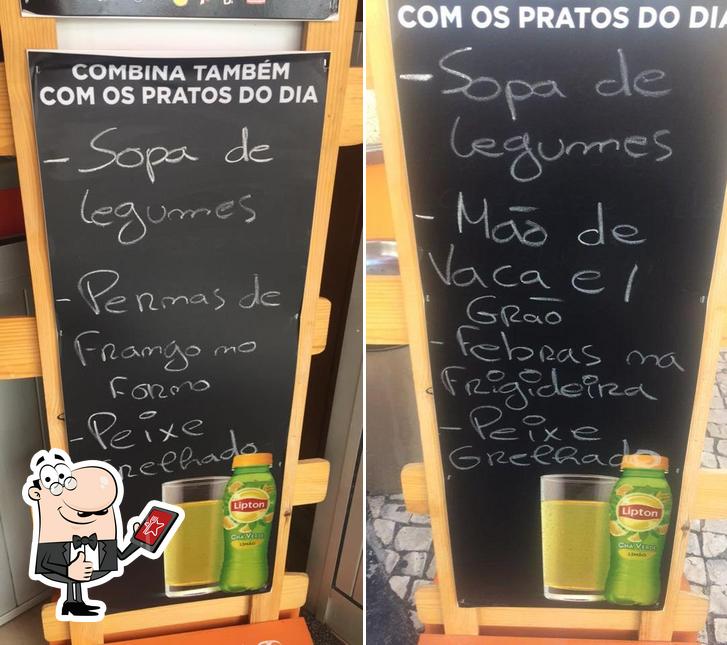 COMBINA TAMBÉM
COM OS PRATOS DO DIA
- Sopa de
legumes
- Pernas de
Frango no
Forno
- Peixe
Grelhado
Lipton
CHÁ VERDE
LIMÃO
COM OS PRATOS DO DIA
- Sopa de
legumes
- Mão de
Vaca c/
Grão
- Febras na
Frigideira
- Peixe
Grelhado
Lipton
CHÁ VERDE
LIMÃO